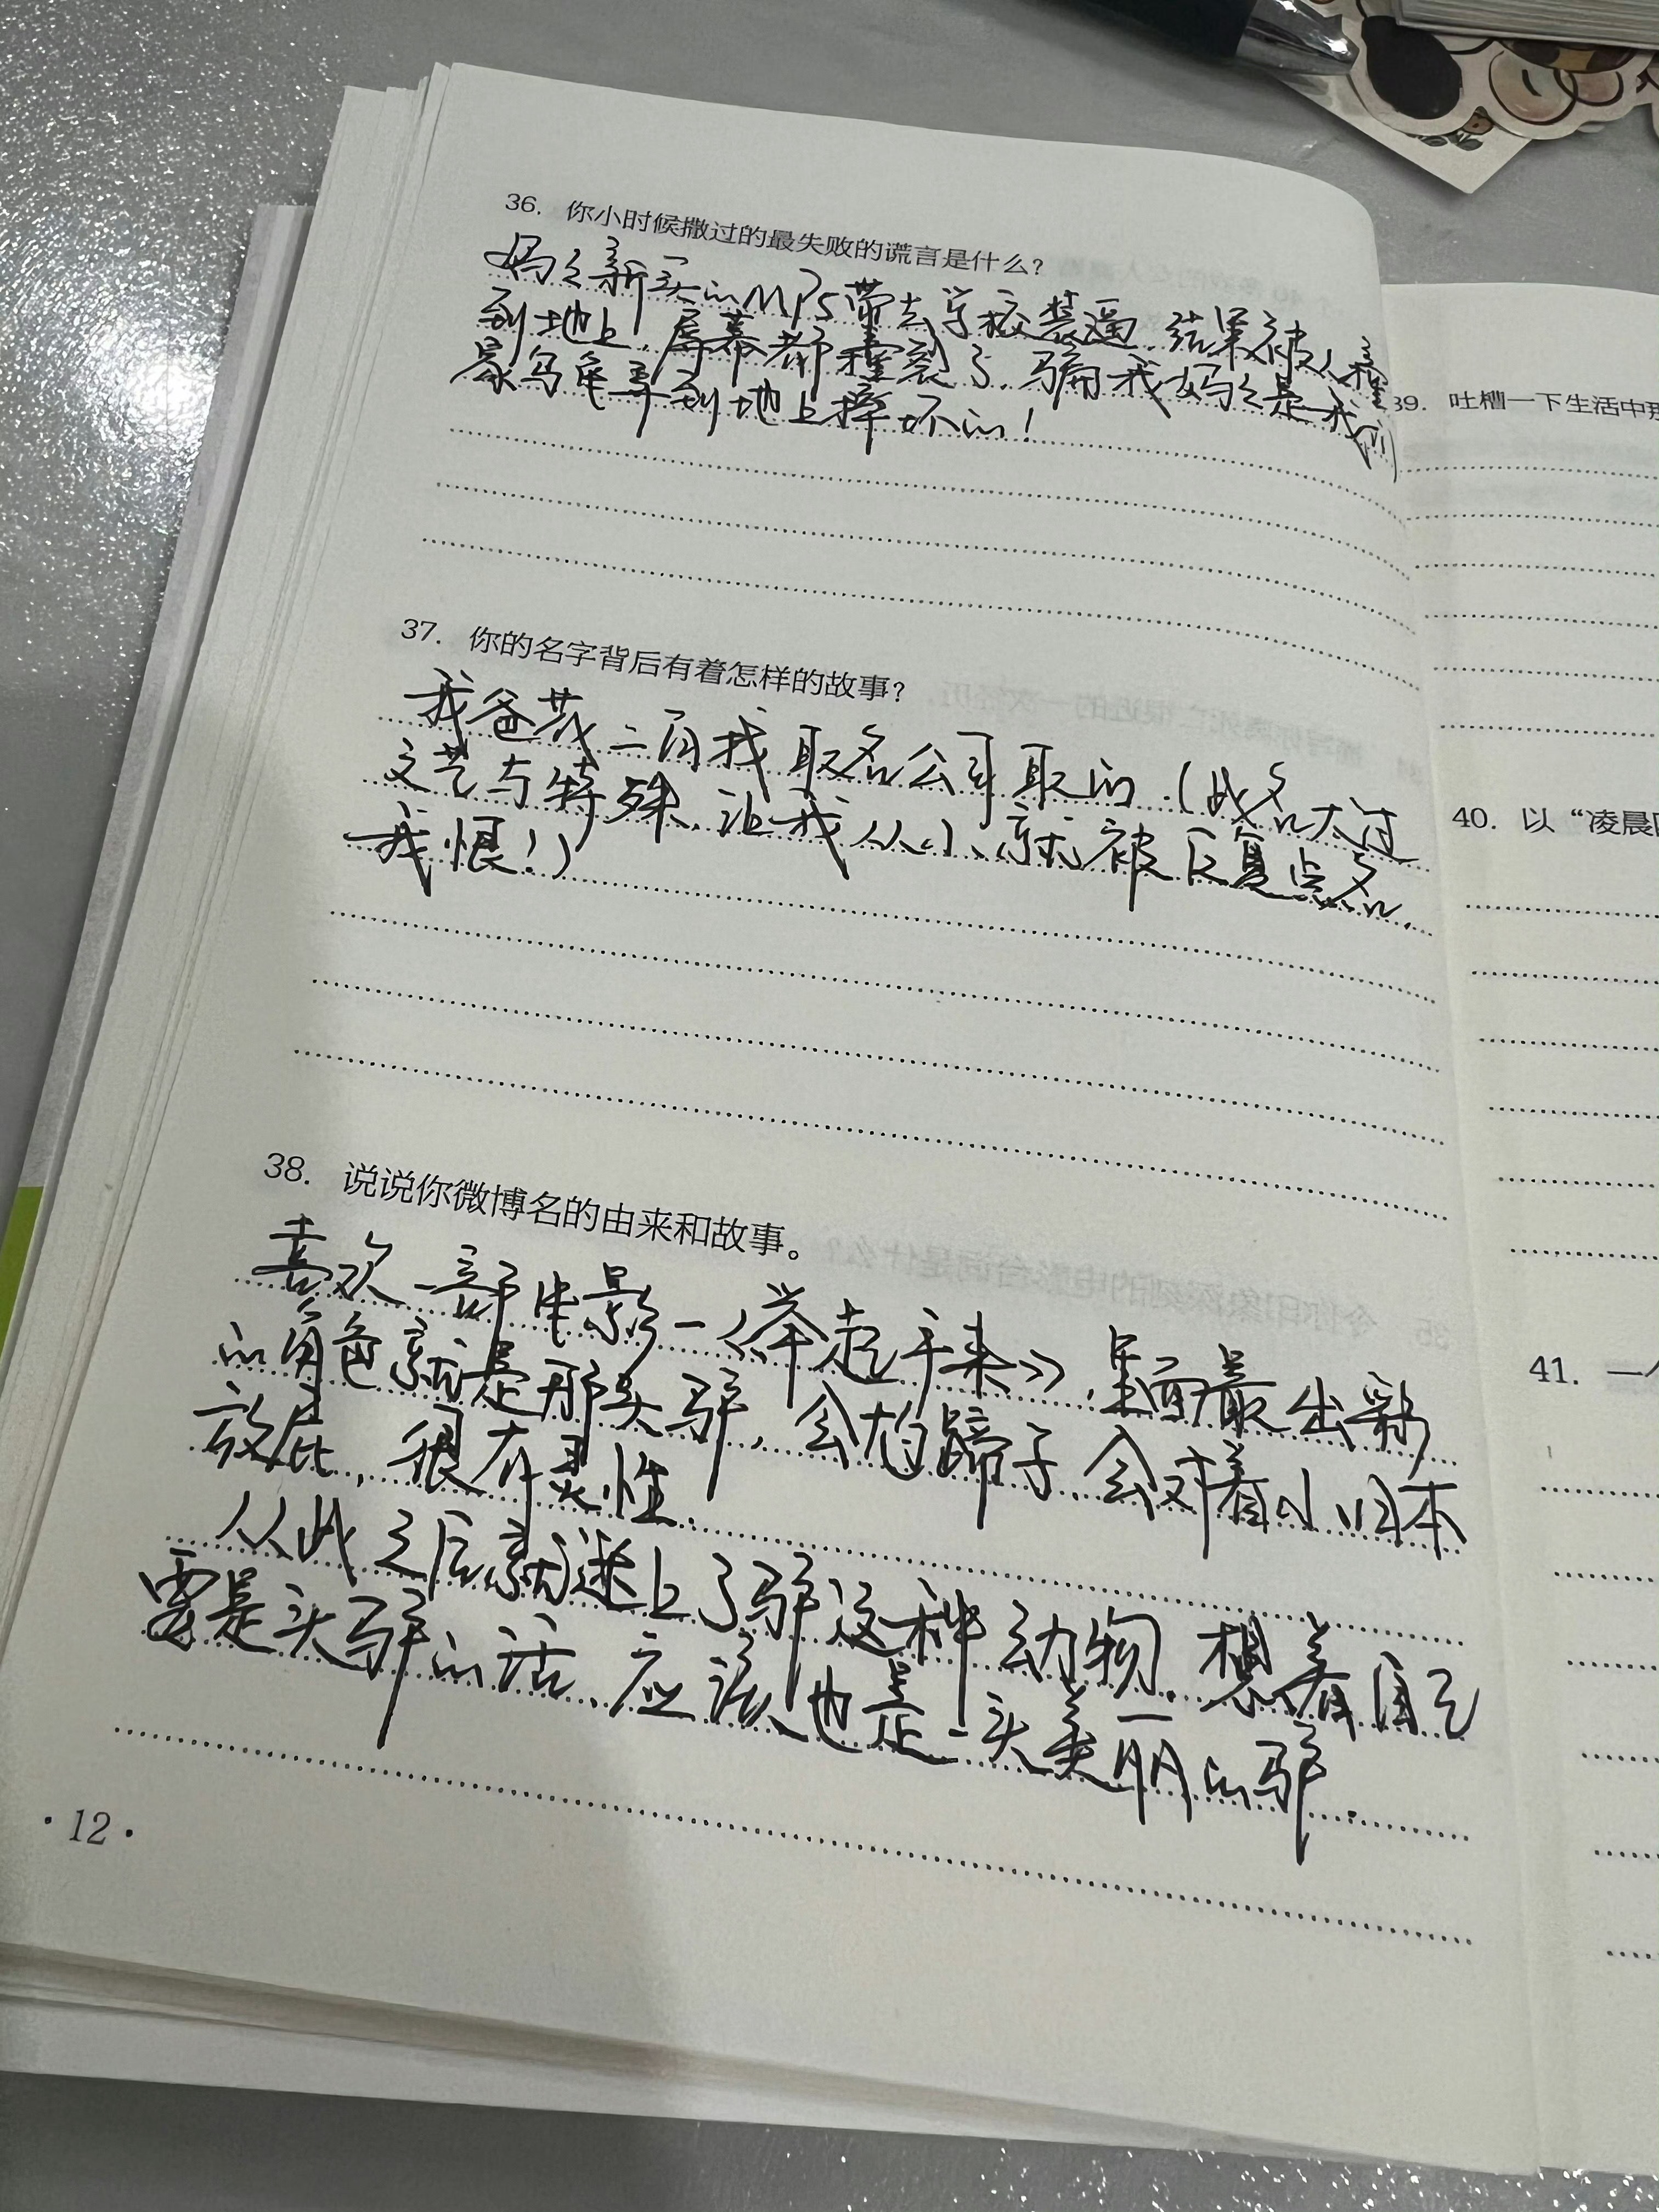 36. 你小时候撒过的最失败的谎言是什么?
妈妈新买的MP5带去学校装逼,结果被人撞
到地上,屏幕都撞裂了,骗我妈妈是我们
家乌龟弄到地上摔坏的!
37. 你的名字背后有着怎样的故事?
我爸花二百找取名公司取的.(此名太过
文艺与特殊,让我从小就被反复点名,
我恨!)
38. 说说你微博名的由来和故事。
喜欢一部电影—《举起手来》,里面最出彩
的角色就是那头驴,会尥蹄子,会对着小日本
放屁,很有灵性.
从此之后就迷上了驴这种动物,想着自己
要是头驴的话,应该也是一头美丽的驴.
·12·
39. 吐槽一下生活中
40. 以“凌晨
41. 一